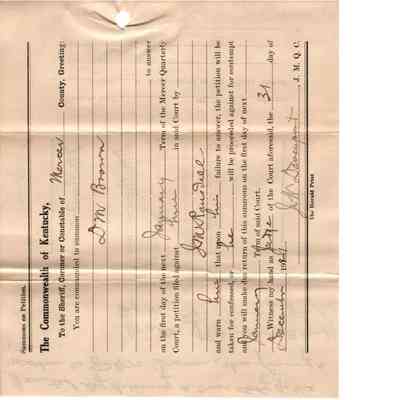 Summons on Petition.
The Commonwealth of Kentucky,
To the Sheriff, Coroner or Constable of Mercer County, Greeting:
You are commanded to summon
D M Brown
to answer
on the first day of the next January Term of the Mercer Quarterly
Court, a petition filed against him in said Court by
and warn him that upon his failure to answer, the petition will be
taken for confessed, or he will be proceeded against for contempt
and you will make due return of this summons on the first day of next
January Term of said Court.
Witness my hand as Judge of the Court aforesaid, the 31 day of
December
J. M. Q. C.
The Herald Print